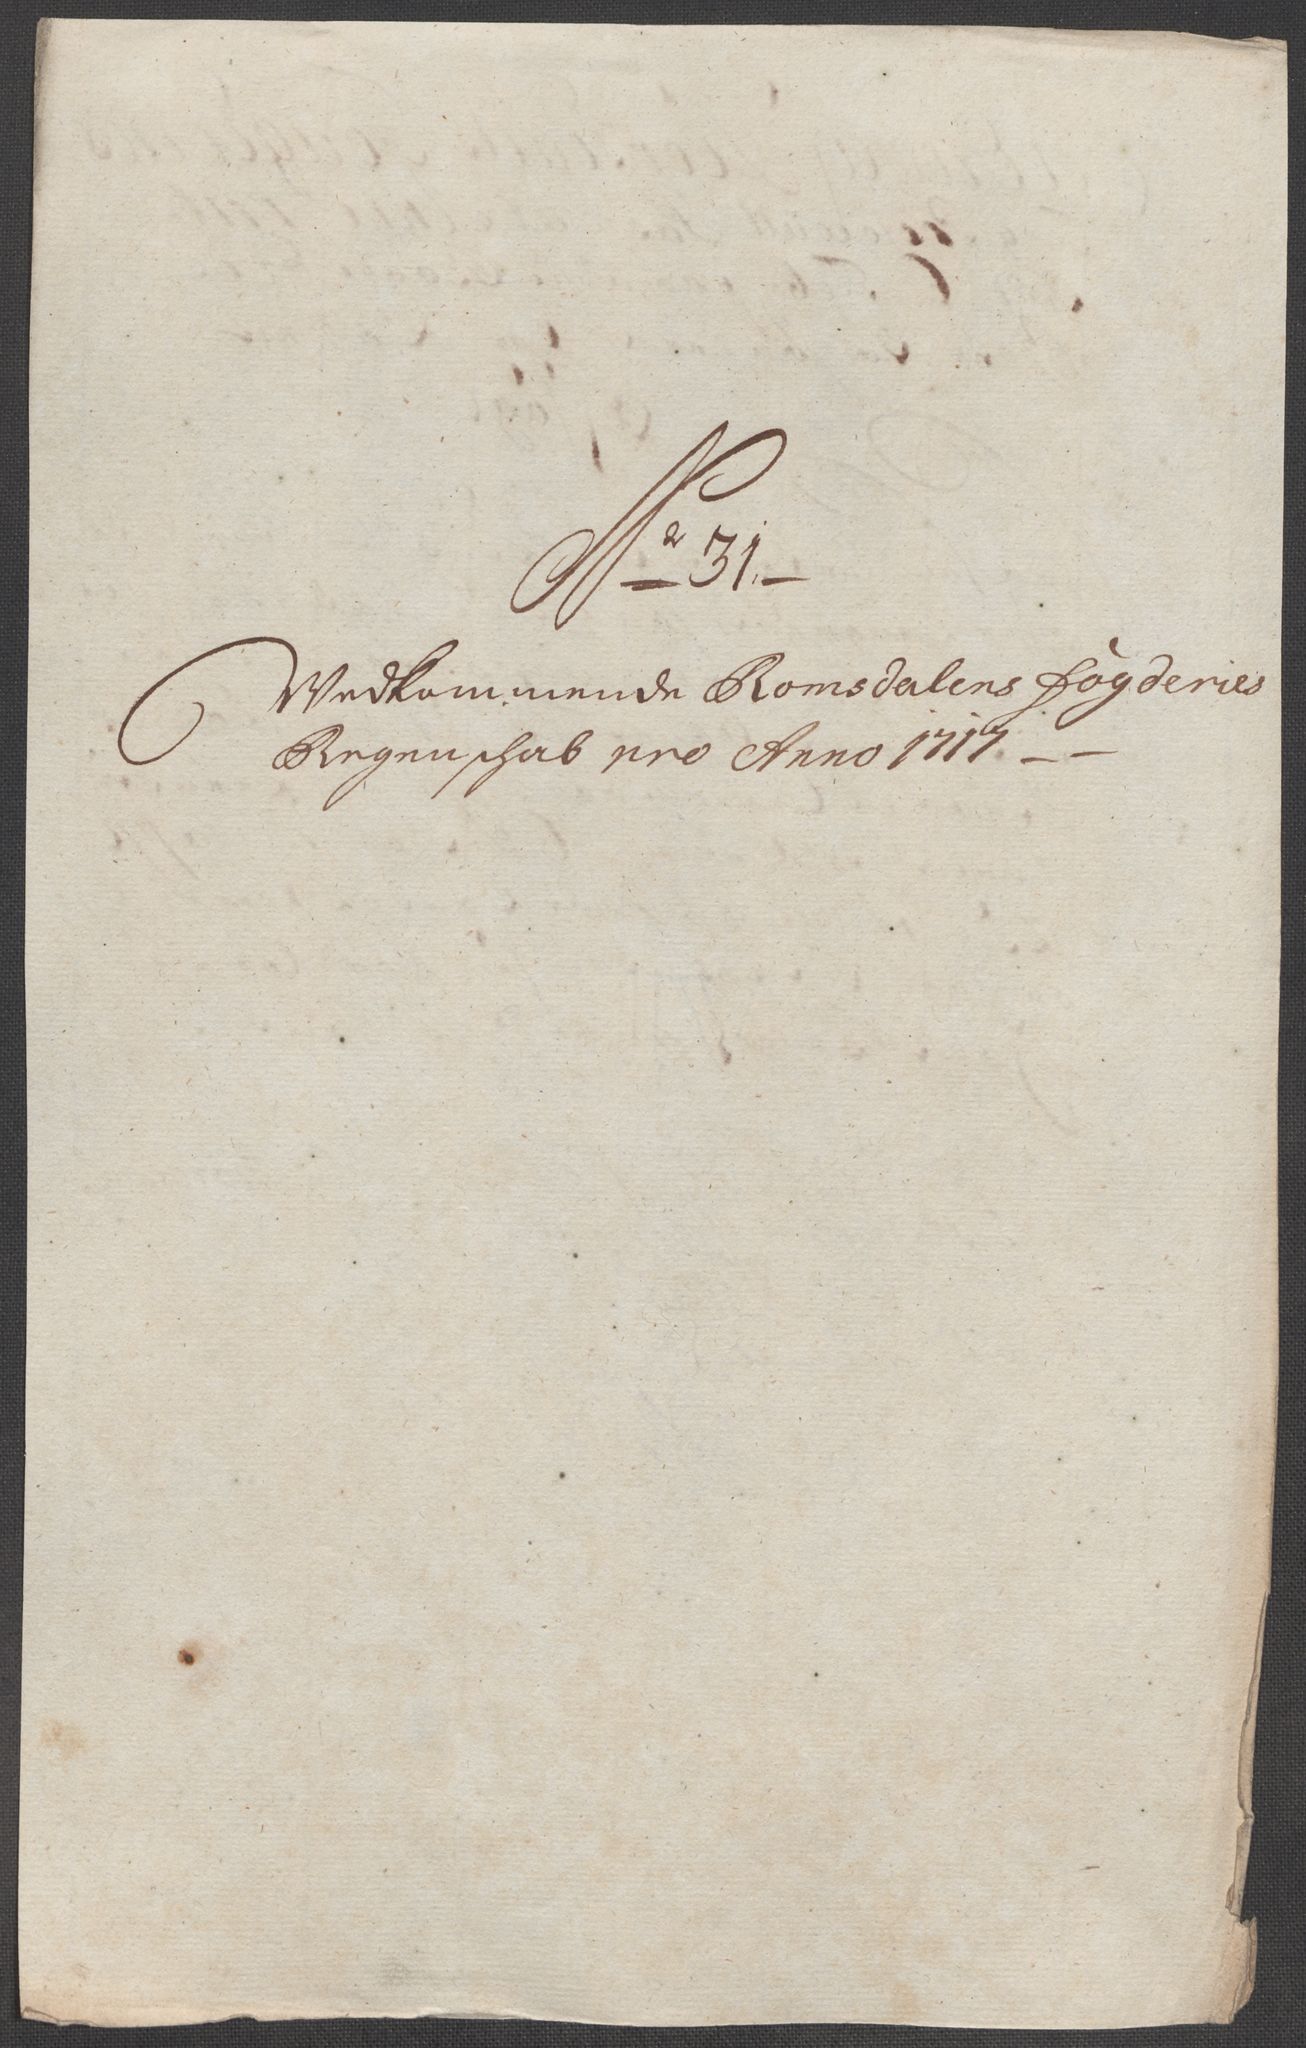 No 31.
Vedkommende Romsdalens fogderies
Regenschab pro Anno 1717